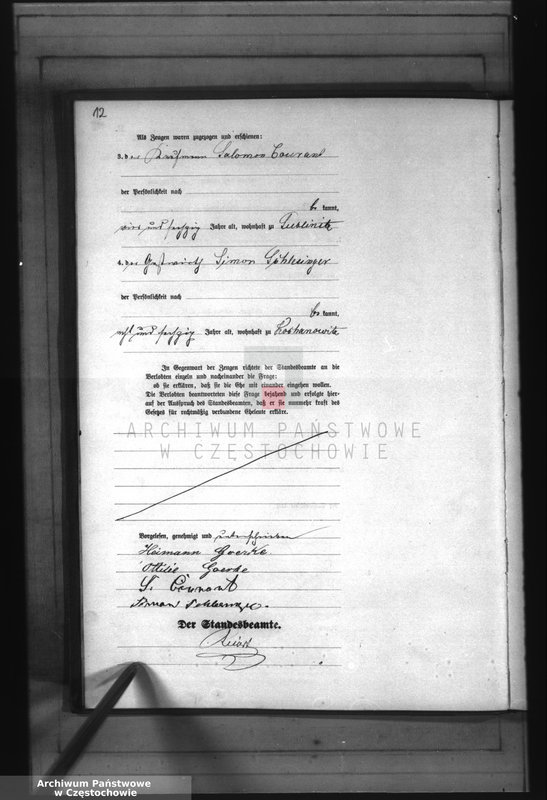 12
Als Zeugen waren zugezogen und erschienen:
3. der Kaufmann Salomon Courant
der Persönlichkeit nach
be kannt,
vier und sechzig Jahre alt, wohnhaft zu Lublinitz
4. der Gastwirth Simon Schlesinger
der Persönlichkeit nach
be kannt,
acht und sechzig Jahre alt, wohnhaft zu Kochanowitz
In Gegenwart der Zeugen richtete der Standesbeamte an die
Verlobten einzeln und nacheinander die Frage:
ob sie erklären, daß sie die Ehe mit einander eingehen wollen.
Die Verlobten beantworteten diese Frage bejahend und erfolgte hier-
auf der Ausspruch des Standesbeamten, daß er sie nunmehr kraft des
Gesetzes für rechtmäßig verbundene Eheleute erkläre.
ARCHIWUM PAŃSTWOWE
W CZĘSTOCHOWIE
Vorgelesen, genehmigt und unterschrieben
Heimann Goerke
Ottilie Goerke
S. Courant
Simon Schlesinger.
Der Standesbeamte.
Archiwum Państwowe
w Częstochowie